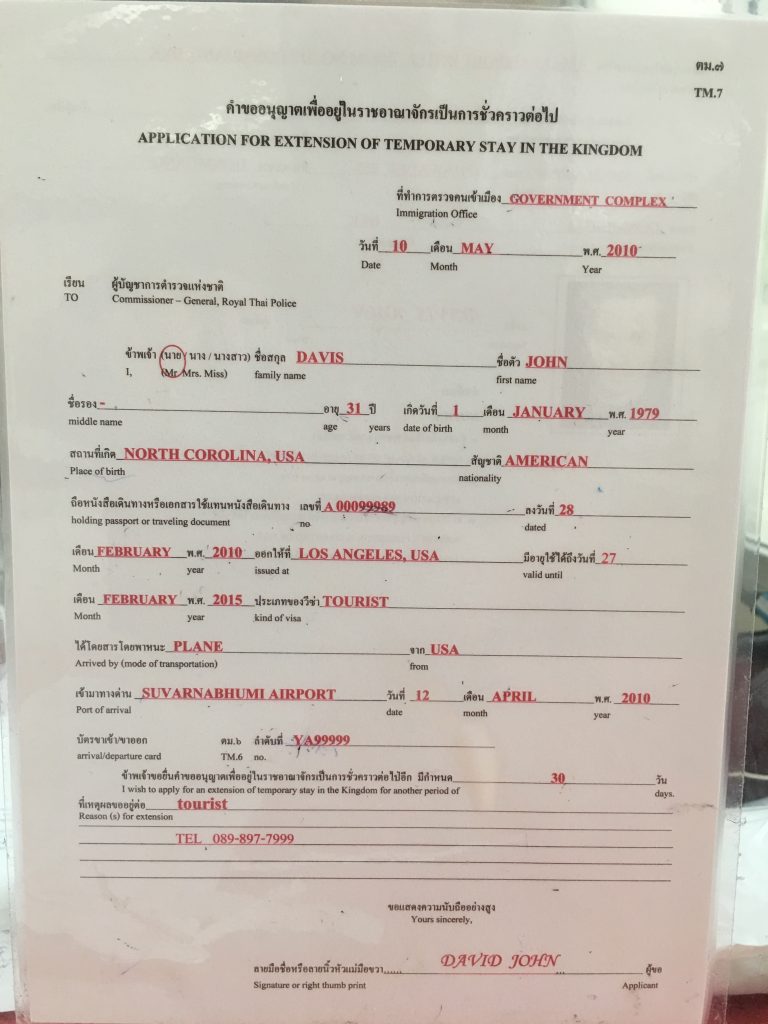 ตม.๗
TM.7
คำขออนุญาตเพื่ออยู่ในราชอาณาจักรเป็นการชั่วคราวต่อไป
APPLICATION FOR EXTENSION OF TEMPORARY STAY IN THE KINGDOM
ที่ทำการตรวจคนเข้าเมือง GOVERNMENT COMPLEX
Immigration Office
วันที่ 10 เดือน MAY พ.ศ. 2010
Date Month Year
เรียน ผู้บัญชาการตำรวจแห่งชาติ
TO Commissioner – General, Royal Thai Police
ข้าพเจ้า (นาย / นาง / นางสาว) ชื่อสกุล DAVIS ชื่อตัว JOHN
I, (Mr. Mrs. Miss) family name first name
ชื่อรอง - อายุ 31 ปี เกิดวันที่ 1 เดือน JANUARY พ.ศ 1979
middle name age years date of birth month year
สถานที่เกิด NORTH COROLINA, USA สัญชาติ AMERICAN
Place of birth nationality
ถือหนังสือเดินทางหรือเอกสารใช้แทนหนังสือเดินทาง เลขที่ A 00099989 ลงวันที่ 28
holding passport or traveling document no dated
เดือน FEBRUARY พ.ศ. 2010 ออกให้ที่ LOS ANGELES, USA มีอายุใช้ได้ถึงวันที่ 27
Month year issued at valid until
เดือน FEBRUARY พ.ศ. 2015 ประเภทของวีซ่า TOURIST
Month year kind of visa
ได้โดยสารโดยพาหนะ PLANE จาก USA
Arrived by (mode of transportation) from
เข้ามาทางด่าน SUVARNABHUMI AIRPORT วันที่ 12 เดือน APRIL พ.ศ. 2010
Port of arrival date month year
บัตรขาเข้า/ขาออก ตม.๖ ลำดับที่ YA99999
arrival/departure card TM.6 no.
ข้าพเจ้าขอยื่นคำขออนุญาตเพื่ออยู่ในราชอาณาจักรเป็นการชั่วคราวต่อไปอีก มีกำหนด 30 วัน
I wish to apply for an extension of temporary stay in the Kingdom for another period of days.
ที่เหตุผลขออยู่ต่อ tourist
Reason (s) for extension
TEL 089-897-7999
ขอแสดงความนับถืออย่างสูง
Yours sincerely,
ลายมือชื่อหรือลายนิ้วหัวแม่มือขวา...... DAVID JOHN ... ผู้ขอ
Signature or right thumb print Applicant